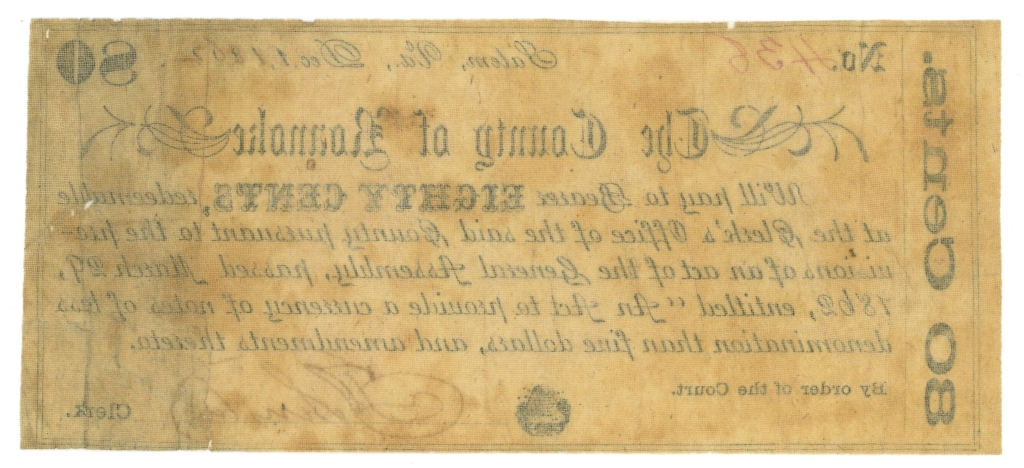 No. 436 Salem, Va., Dec. 1, 1862 80
The County of Roanoke
Will pay to Bearer EIGHTY CENTS, redeemable
at the Clerk's Office of the said County pursuant to the pro-
visions of an act of the General Assembly, passed March 29,
1862, entitled, "An Act to provide a currency of notes of less
denomination than five dollars, and amendments thereto.
By order of the Court.
Clerk.
80 Cents.